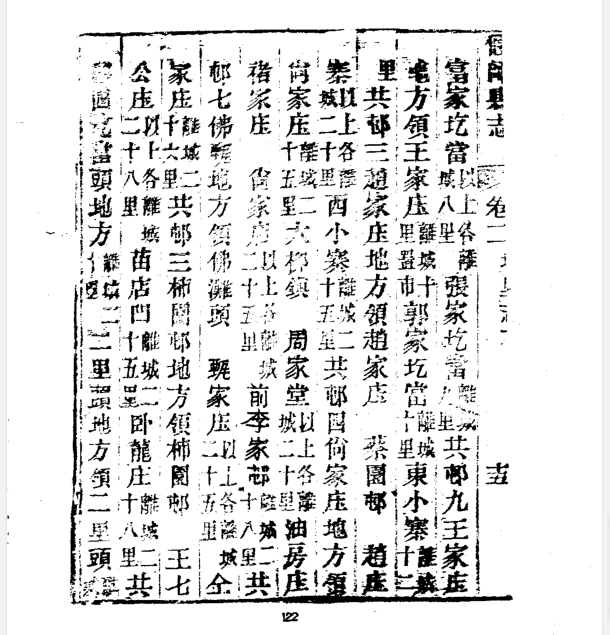 師縣志 卷二 十五
富家圪當以上各離城八里張家圪當離城九里共邨九王家庄
地方領王家庄離城十里置市郭家圪當離城十里東小寨離城十二
里共邨三趙家庄地方領趙家庄 蔡園邨 趙庄
寨以上各離城二十里西小寨離城二十五里共邨四尙家庄地方領
尙家庄離城二十五里大鎮 周家堂以上各離城二十里油房庄
禇家庄 尙家店以上各離城二十五里前李家邨離城二十八里共
邨七佛地方領佛灘頭 家庄以上各離城二十五里仝
家庄離城二十六里共邨三柿園邨地方領柿園邨 王七
公庄以上各離城二十八里苗店凹離城二十五里臥龍庄離城二十八里共
圪當頭地方離城二里頭地方領二里頭
122